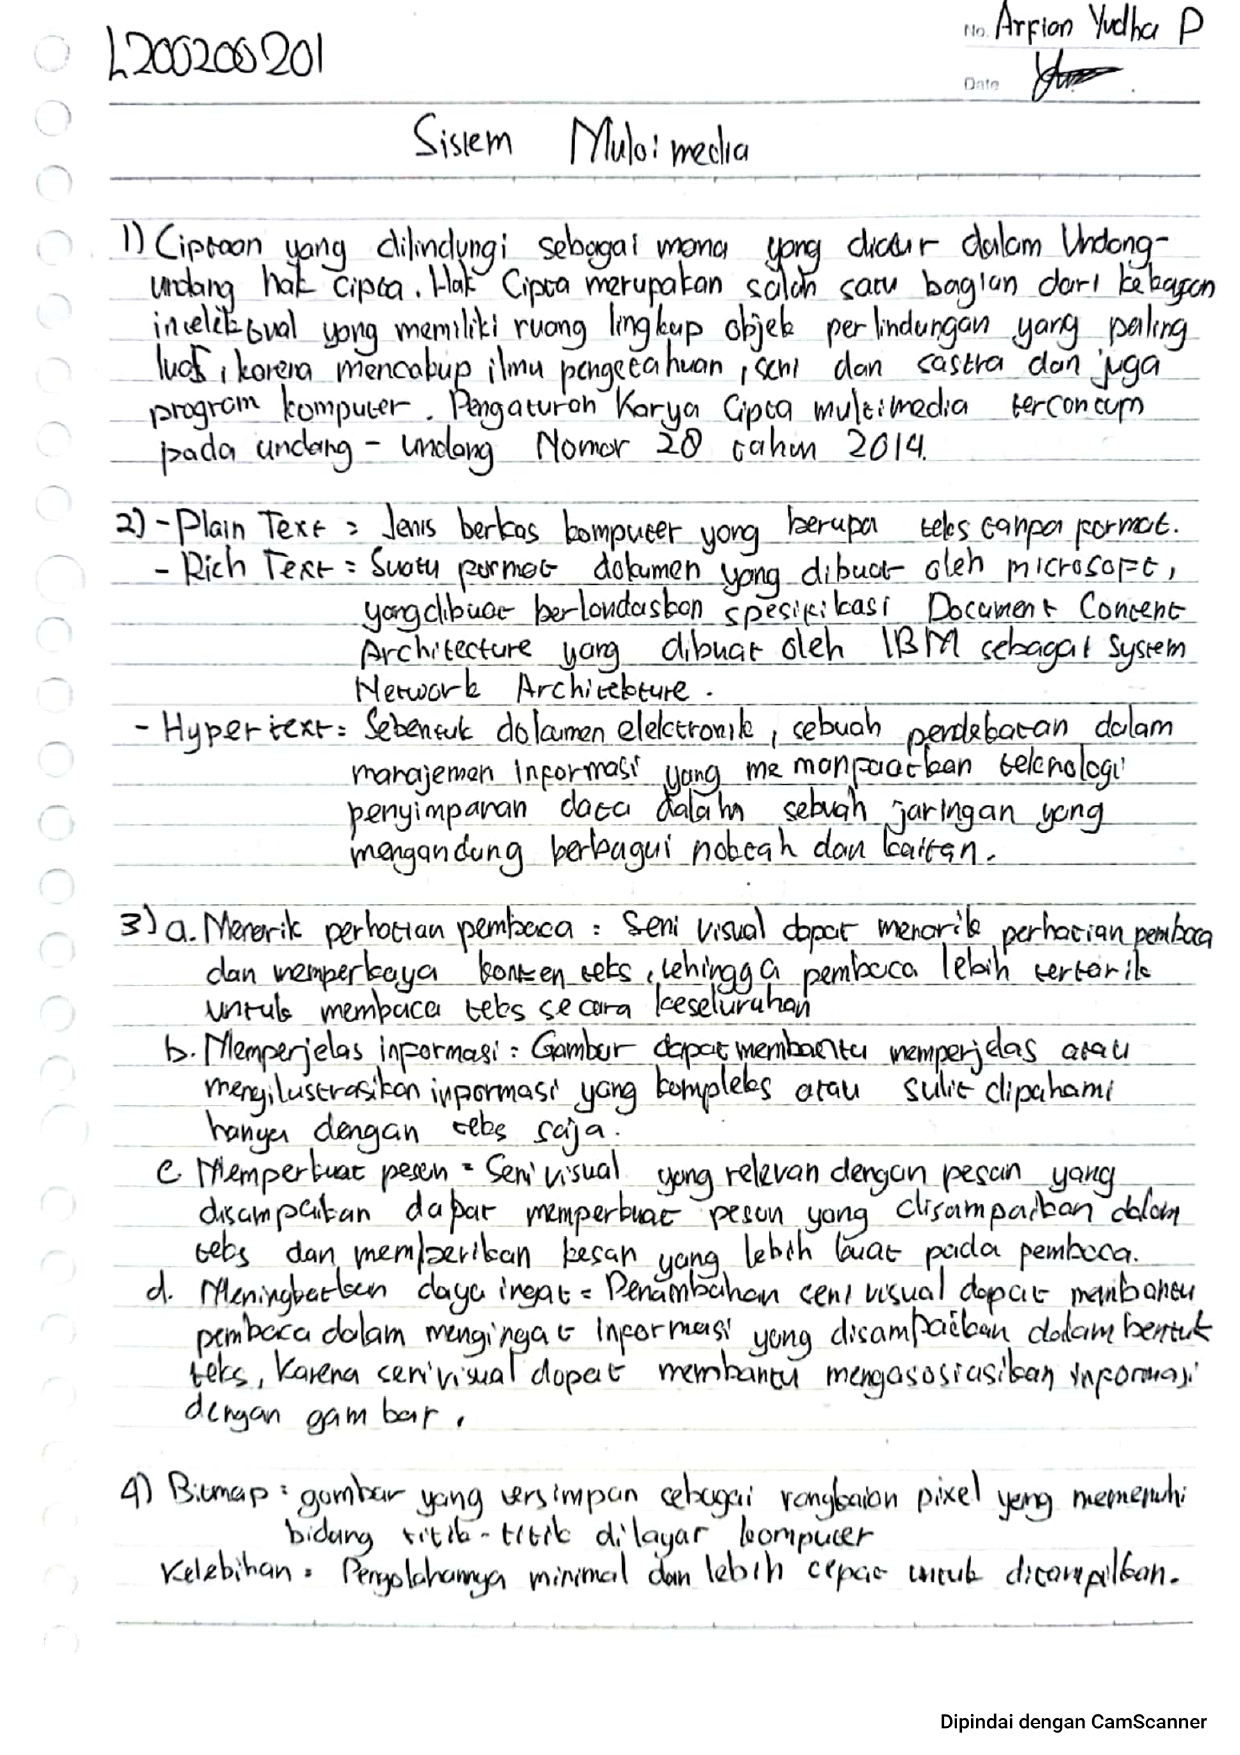 L200200201
No. Arfian Yudha P
Date
Sistem Multimedia
1) Ciptaan yang dilindungi sebagai mana yang diatur dalam Undang-
undang hak cipta. Hak Cipta merupakan salah satu bagian dari kekayaan
intelektual yang memiliki ruang lingkup objek perlindungan yang paling
luas, karena mencakup ilmu pengetahuan, seni dan sastra dan juga
program komputer. Pengaturan Karya Cipta multimedia tercantum
pada undang - undang Nomor 28 tahun 2014.
2) - Plain Text = Jenis berkas komputer yang berupa teks tanpa format.
- Rich Text = Suatu format dokumen yang dibuat oleh microsoft,
yang dibuat berlandaskan spesifikasi Document Content
Architecture yang dibuat oleh IBM sebagai System
Network Architekture.
- Hypertext = Sebentuk dokumen elektronik, sebuah pendekatan dalam
manajemen informasi yang memanfaatkan teknologi
penyimpanan data dalam sebuah jaringan yang
mengandung berbagai noktah dan kaitan.
3) a. Menarik perhatian pembaca : Seni visual dapat menarik perhatian pembaca
dan memperkaya konten teks, sehingga pembaca lebih tertarik
untuk membaca teks secara keseluruhan
b. Memperjelas informasi = Gambar dapat membantu memperjelas atau
mengilustrasikan informasi yang kompleks atau sulit dipahami
hanya dengan teks saja.
c. Memperkuat pesan = Seni visual yang relevan dengan pesan yang
disampaikan dapat memperkuat pesan yang disampaikan dalam
teks dan memberikan kesan yang lebih kuat pada pembaca.
d. Meningkatkan daya ingat = Penambahan seni visual dapat membantu
pembaca dalam mengingat informasi yang disampaikan dalam bentuk
teks, karena seni visual dapat membantu mengasosiasikan informasi
dengan gambar.
4) Bitmap : gambar yang tersimpan sebagai rangkaian pixel yang memenuhi
bidang titik-titik dilayar komputer
Kelebihan = Pengolahannya minimal dan lebih cepat untuk ditampilkan.
Dipindai dengan CamScanner